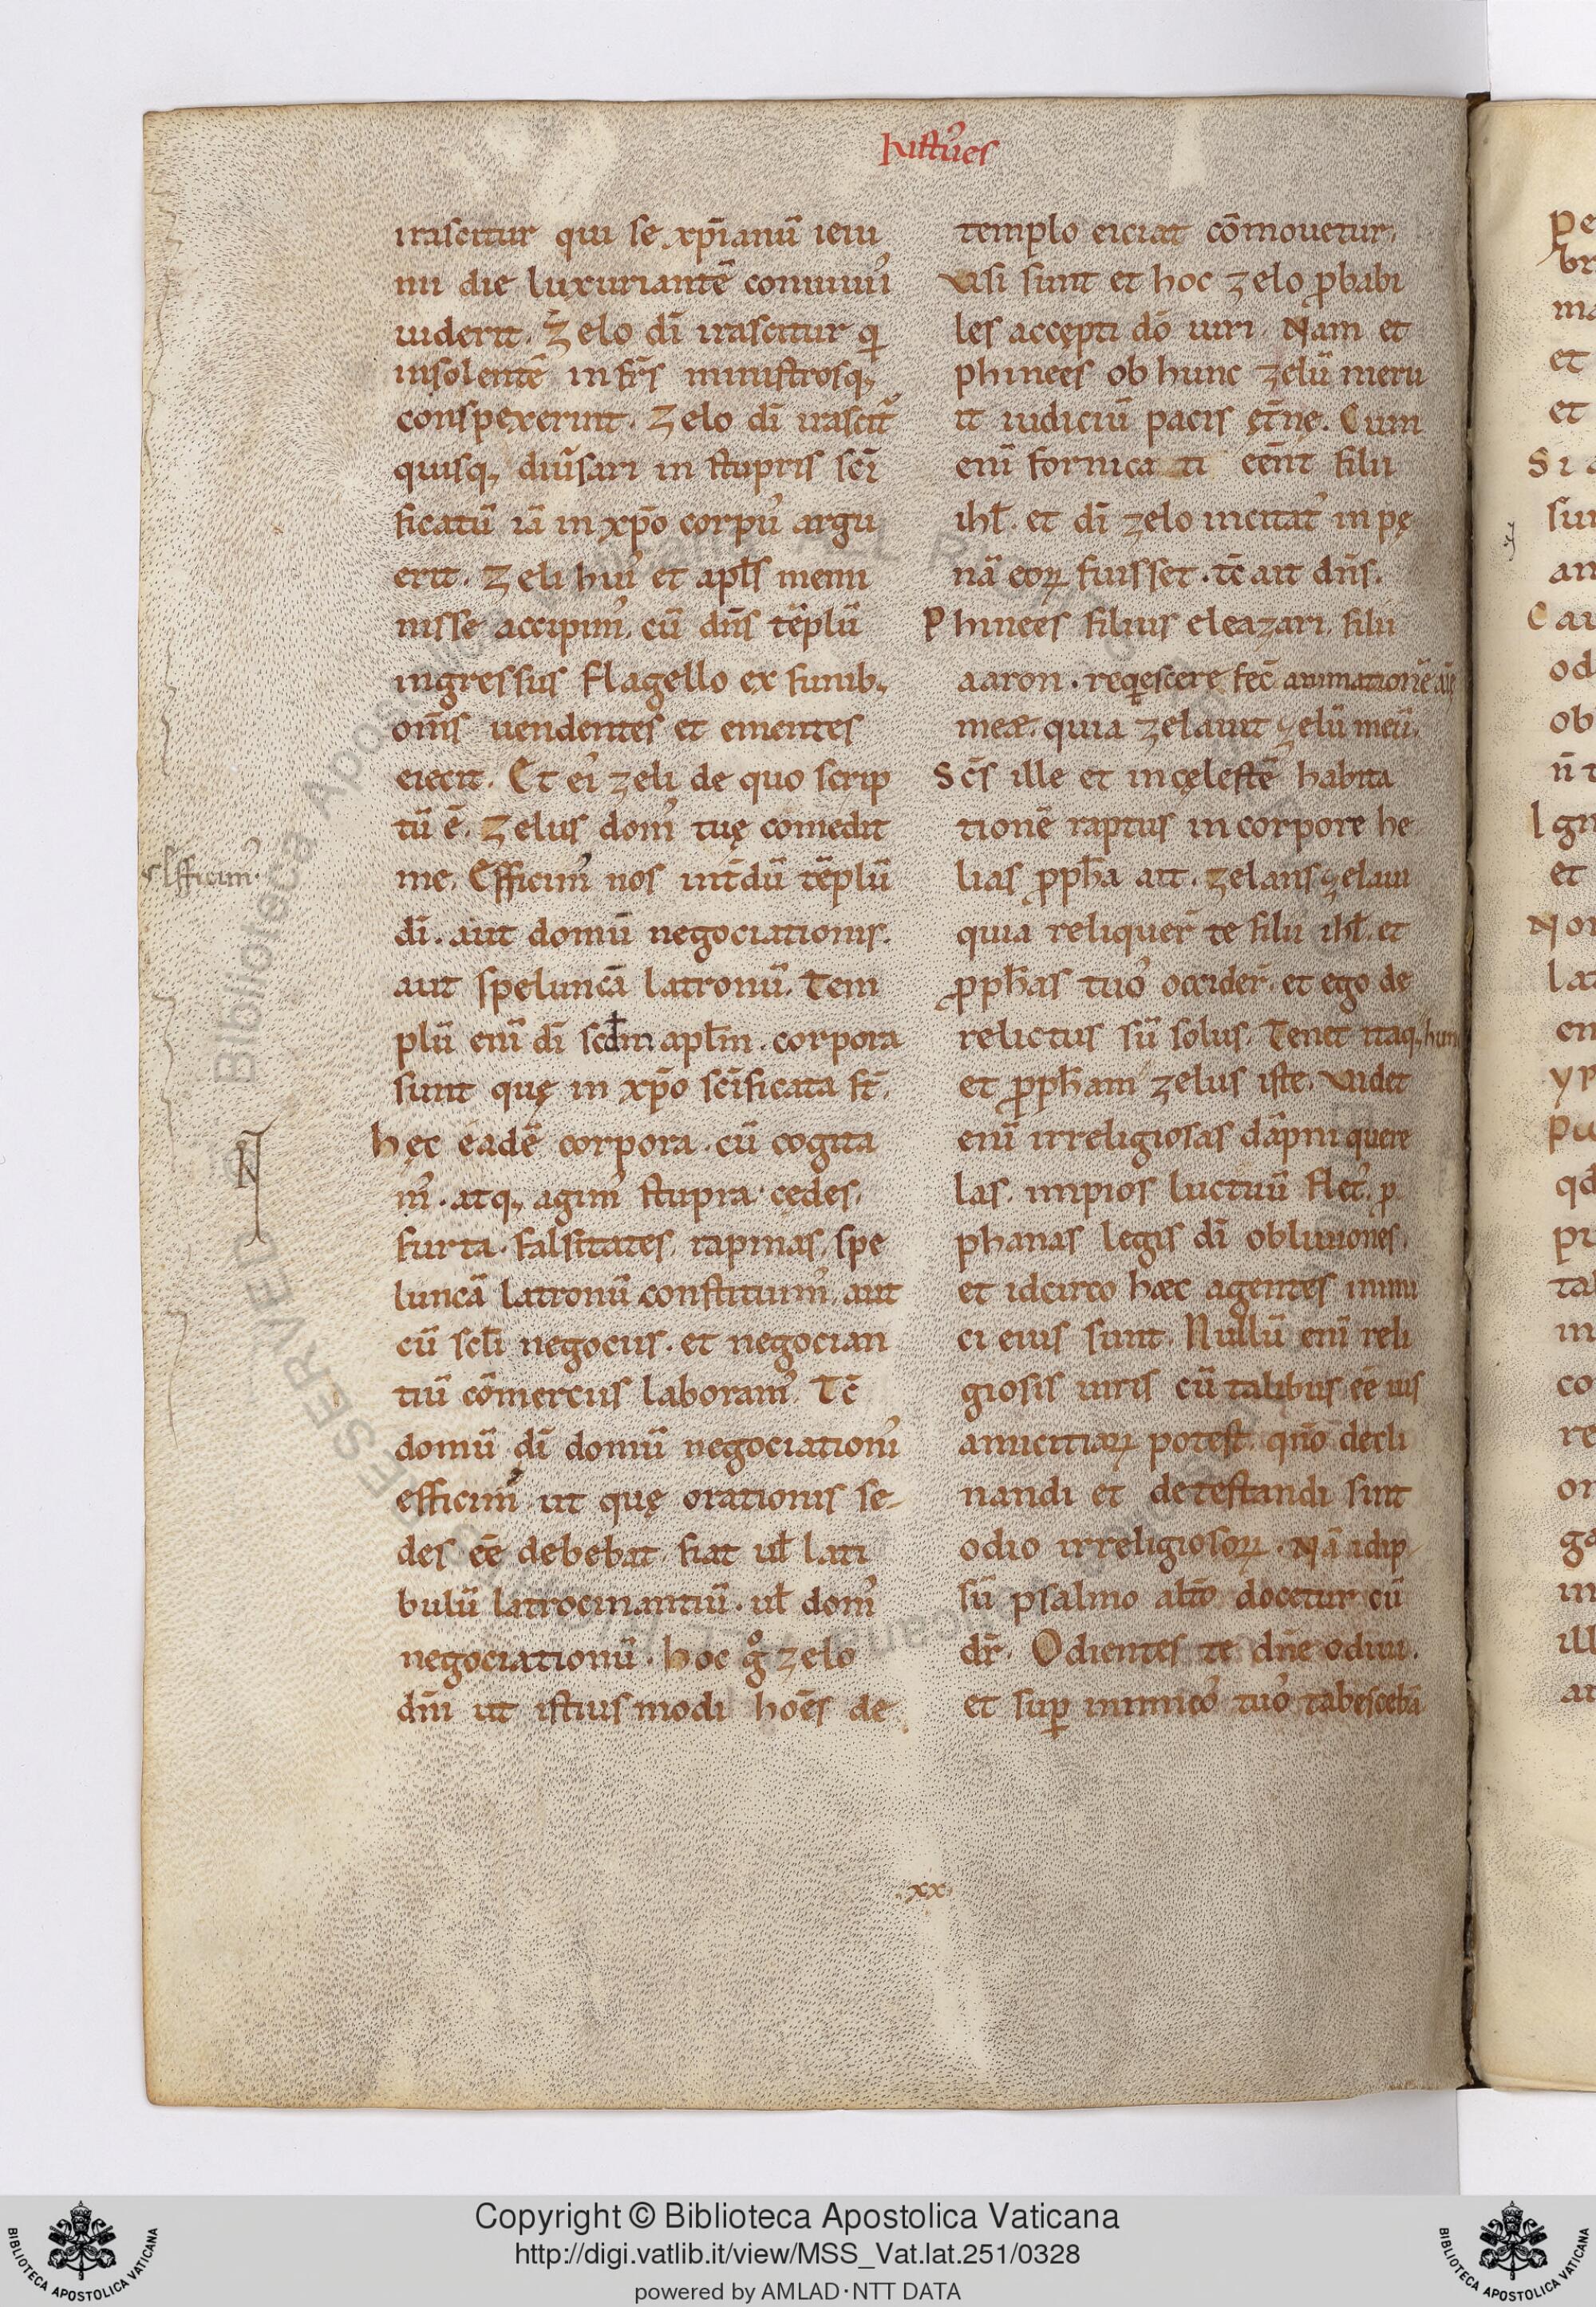 irascitur qui se xp̄ianū ieiu
nii die luxuriantē conuiuiū
uiderit. Zelo dī irascitur q
insolentē in fr̄s ministrosq;
conspexerint. Zelo dī irascit᷑
quisq; diūsari in stupris sc̄i
ficatū iā in xp̄o corpuʼ argu
erit. Zeli huiʼ et apl̄s memi
nisse accipimʼ. cū dn̄s tēplū
ingressus flagello ex funib;
om̄s uendentes et ementes
eiecit. Et eiʼ zeli de quo scrip
tū ē. Zelus domʼ tuę comedit
me. Efficimʼ nos int̄dū tēplū
dī. aut domū negociationis.
aut speluncā latronū. Tem
plū enī dī scd̄m apl̄m. corpora
sunt quę in xp̄o sc̄ificata st̄.
hęc eadē corpora. cū cogita
mʼ. atq; agimʼ stupra. cędes.
furta. falsitates. rapinas. spe
luncā latronū constituimʼ. aut
cū scl̄i negociis. et negocian
tiū cōmerciis laboramʼ. Tc̄
domū dī domū negociationiʼ
efficimʼ. ut quę orationis se-
des eē debebat. fiat ul̄ lati
bulū latrocinantiū. ul̄ domʼ
negociationū. hoc gͦ zelo
dn̄i ut istiusmodi hoēs de
templo eiciat cōmouetur.
Visi sunt et hoc zelo ꝓbabi
les accepti dō uiri. Nam et
phinees ob hunc zelū meru
it iudiciū pacis ęt̄nę. Cum
enī fornicati eēnt filii
ihl̄. et dī zelo incitatʼ in pę
nā eoꝝ fuisset. tc̄ ait dn̄s.
Phinees filius eleazari. filii
aaron. reqescere fec̄ animationē
meæ. quia zelauit zelū meū.
Sc̄s ille et in cęlestē habita
tionē raptus in corpore he
lias ꝓph̄a ait. zelans zelaui
quia reliquer̄ te filii ihl̄. et
ꝓph̄as tuoʼ occider̄. et ego de
relictus sū solus. Tenet itaq; hunc
et ꝓph̄am zelus iste. Videt
enī irreligiosas dāpni quere
las. impios luctuū fletʼ. ꝓ
phanas legis dī obliuiones.
et idcirco hæc agentes inimi
ci eius sunt. Nullū enī reli
giosis uiris cū talibus eē ius
amicitiaꝝ potest. qn̄o decli
nandi et detestandi sint
odio irreligiosoꝝ. Nā idip-
sū psalmo alt̄o docetur cū
dr̄. Odientes te dn̄e odiui.
et suꝑ inimicoʼ tuoʼ tabescebā
Efficimʼ.
.xx.
Copyright © Biblioteca Apostolica Vaticana
http://digi.vatlib.it/view/MSS_Vat.lat.251/0328
powered by AMLAD·NTT DATA